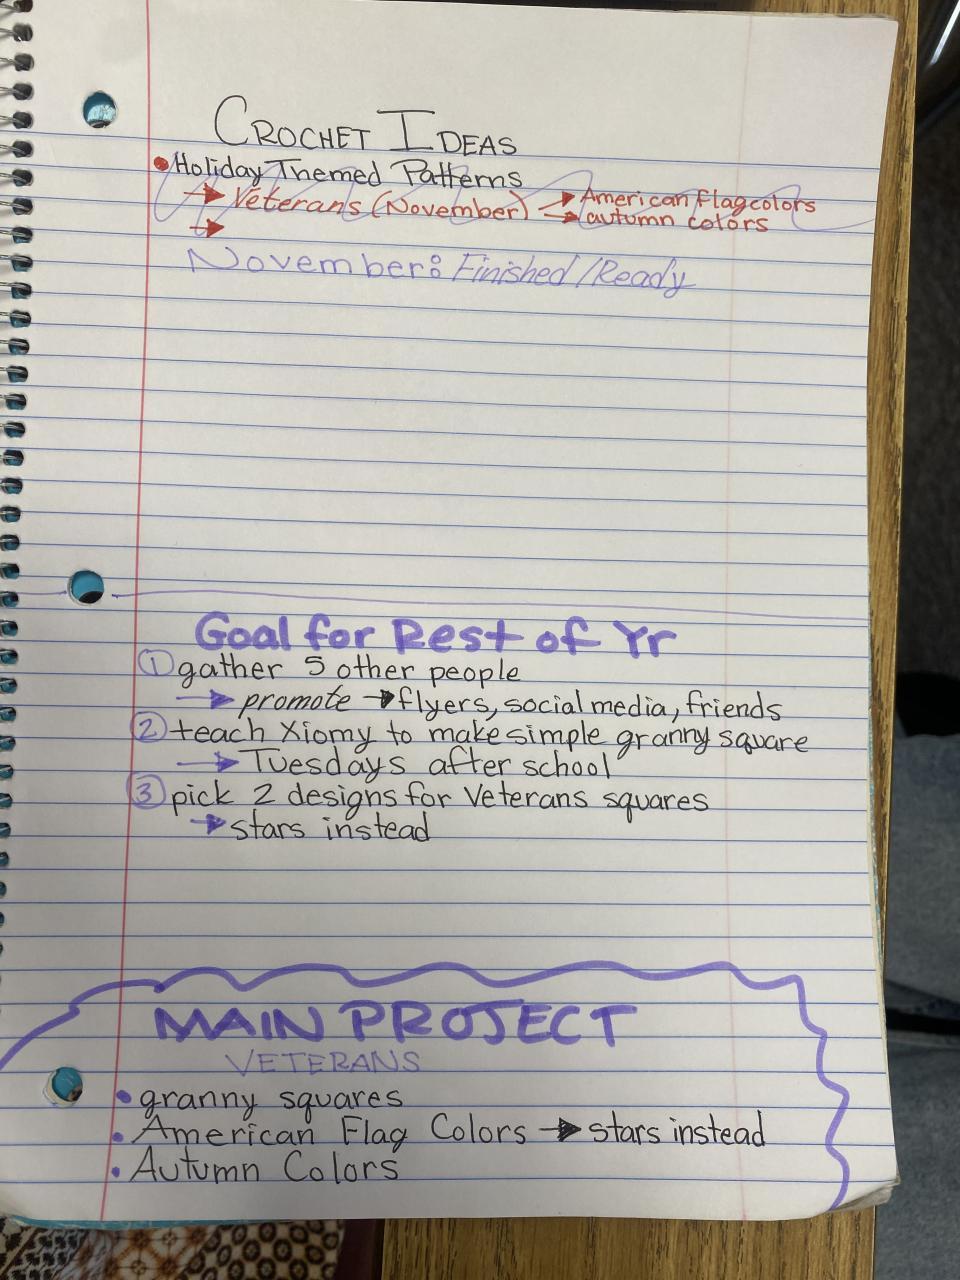 CROCHET IDEAS
• Holiday Themed Patterns
→ Veterans (November) → American flag colors
→ → autumn colors
November: Finished/Ready
Goal for Rest of Yr
① gather 5 other people
→ promote → flyers, social media, friends
② teach Xiomy to make simple granny square
→ Tuesdays after school
③ pick 2 designs for Veterans squares
→ stars instead
MAIN PROJECT
VETERANS
• granny squares
• American Flag Colors → stars instead
• Autumn Colors